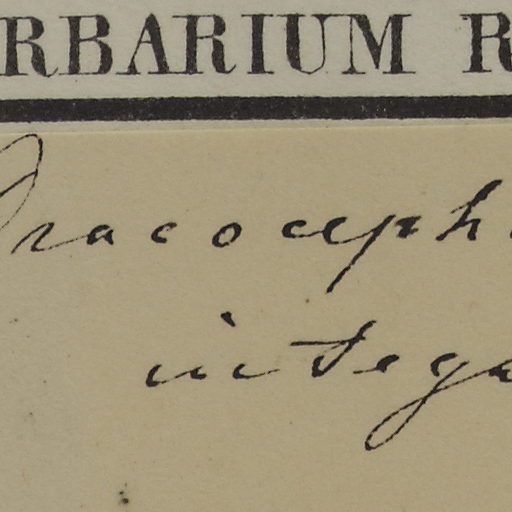 RBARIUM R
Dracoceph
integr